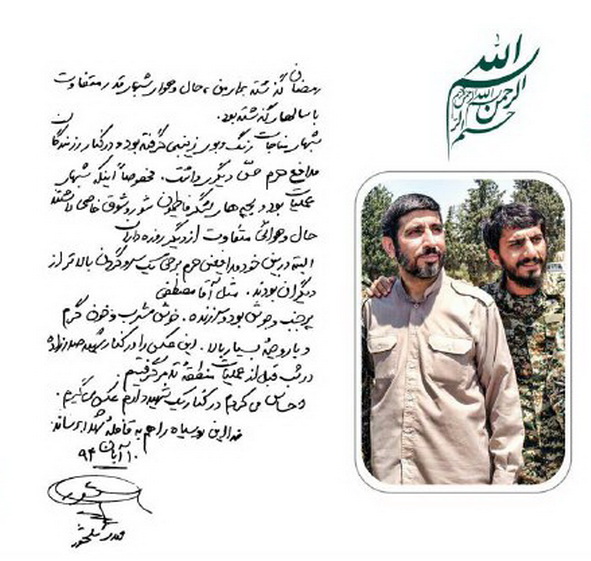 بسم الله الرحمن الرحیم
رمضان گذشته برای من، حال و هوای شبهای قدر متفاوت
با سالهای گذشته بود.
شبهای مناجات رنگ و بوی زینبی گرفته بود و در کنار رزمندگان
مدافع حرم حس دیگری داشت. مخصوصاً اینکه شبهای
عملیات بود و بچه های لشگر فاطمیون شور و شوق خاصی داشتند
حال و هوائی متفاوت از دیگر روزه داران
البته در بین خود مدافعین حرم برخی یک سر و گردن بالاتر از
دیگران بودند. مثل آقا مصطفی
پر جنب و جوش بود و سرزنده. خوش مشرب و خون گرم
و با روحیه بسیار بالا. این عکس را در کنار شهید صدرزاده
در شب قبل از عملیات منطقه تدمر گرفتیم.
احساس می کردم در کنار یک شهید دارم عکس می گیرم.
خدا این رو سیاه را هم به قافله شهدا برساند.
۱۰ آبان ۹۴